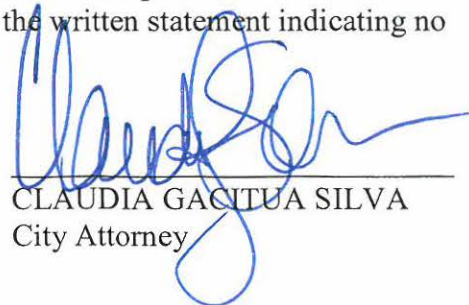 the written statement indicating no
CLAUDIA GACITUA SILVA
City Attorney